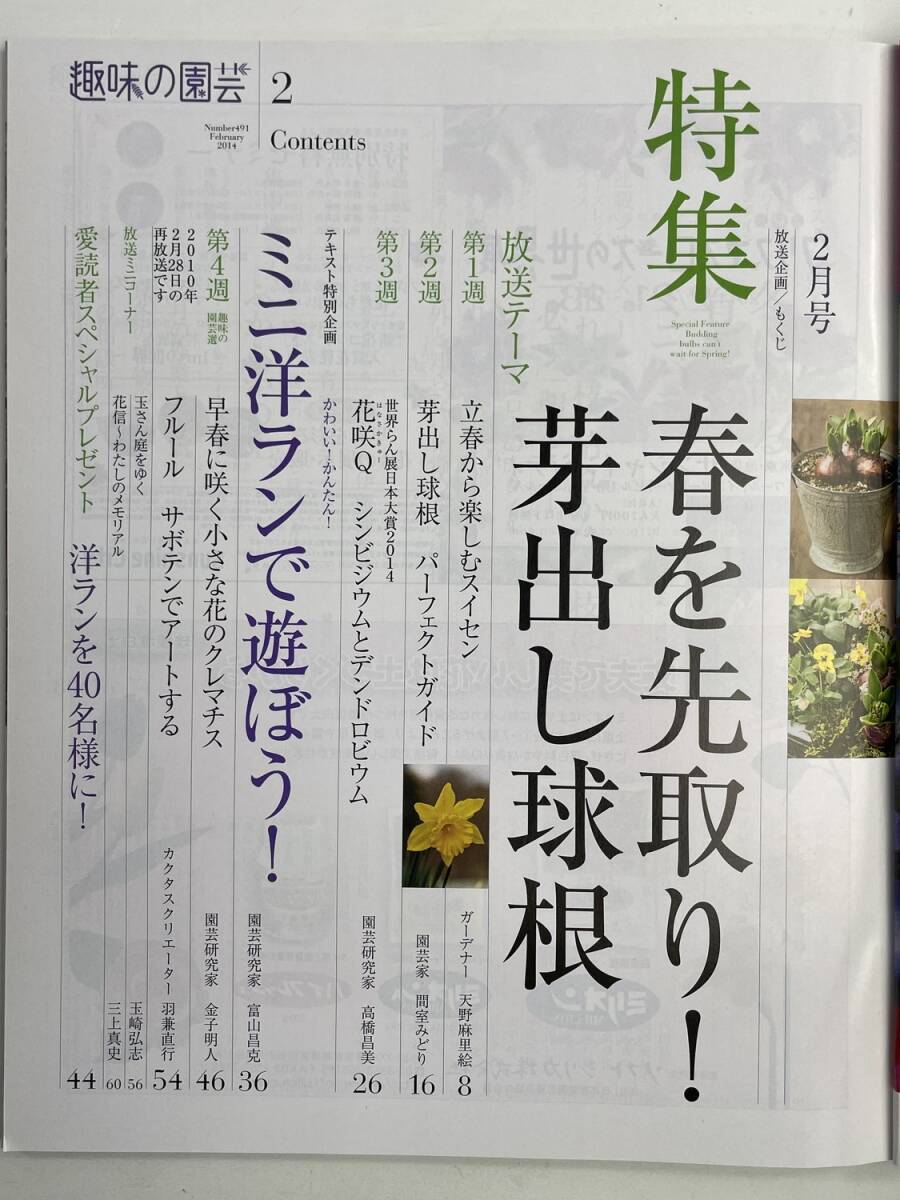 趣味の園芸
2
Number491
February
2014
Contents
2月号
放送企画／もくじ
特集
Special Feature
Budding
bulbs can't
wait for Spring!
春を先取り！
芽出し球根
放送テーマ
第1週
立春から楽しむスイセン
ガーデナー 天野麻里絵
8
第2週
芽出し球根 パーフェクトガイド
園芸家 間室みどり
16
第3週
世界らん展日本大賞2014
はなさかきゅー
花咲Q シンビジウムとデンドロビウム
園芸研究家 高橋昌美
26
テキスト特別企画
かわいい！かんたん！
ミニ洋ランで遊ぼう！
園芸研究家 富山昌克
36
第4週
趣味の
園芸選
早春に咲く小さな花のクレマチス
園芸研究家 金子明人
46
2010年
2月28日の
再放送です
フルール サボテンでアートする
カクタスクリエーター 羽兼直行
54
放送ミニコーナー
玉さん庭をゆく
玉崎弘志
56
花信～わたしのメモリアル
三上真史
60
愛読者スペシャルプレゼント
洋ランを40名様に！
44